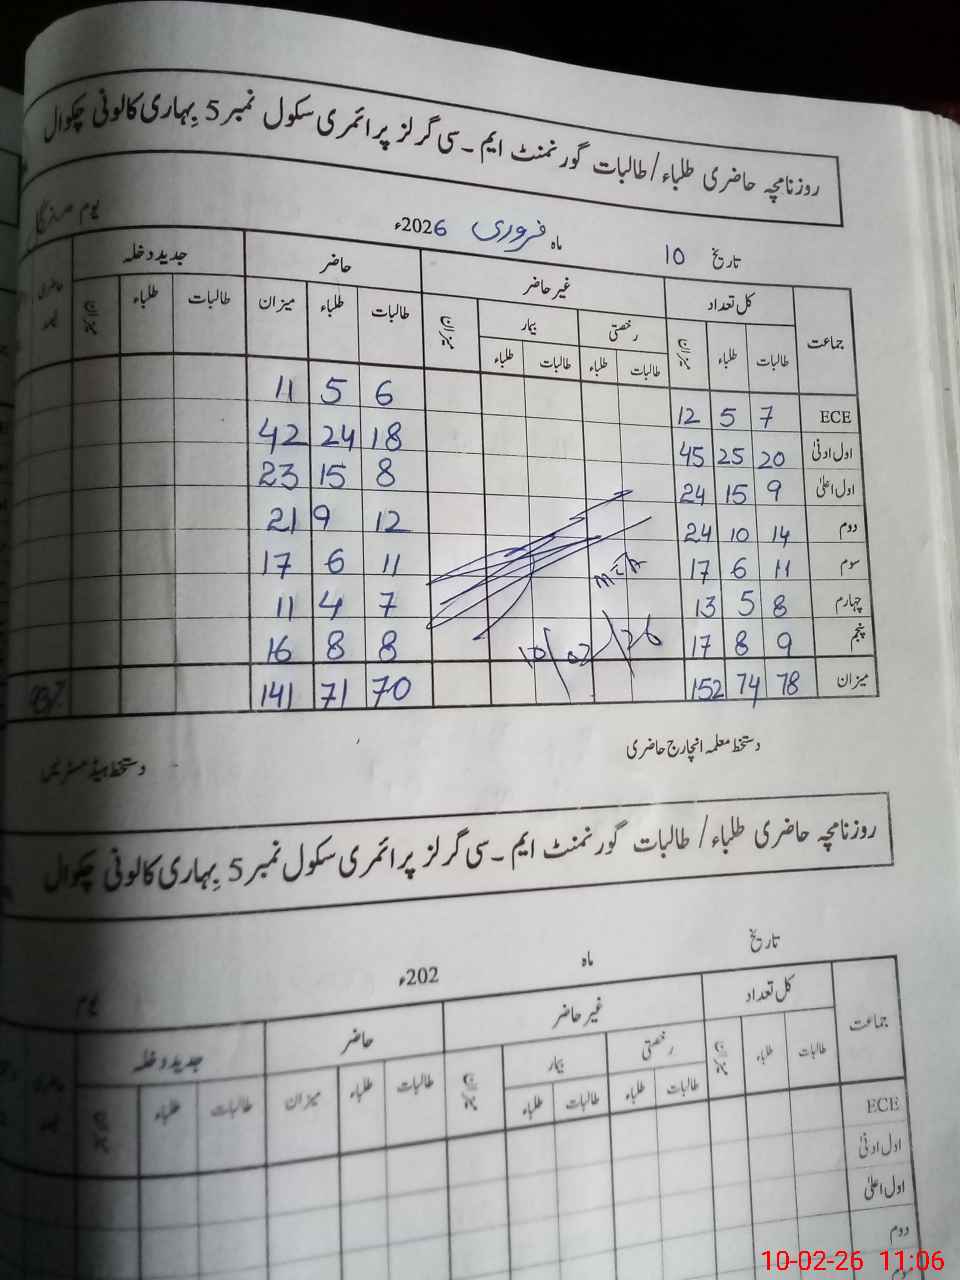 روزنامچہ حاضری طلباء/طالبات گورنمنٹ ایم۔سی گرلز پرائمری سکول نمبر 5 بہاری کالونی چکوال
تاریخ 10 ماہ فروری 2026ء یوم منگل
جماعت کل تعداد غیر حاضر حاضر جدید داخلہ حاضری
رخصتی بیمار
طالبات طلباء میزان طالبات طلباء طالبات طلباء میزان طالبات طلباء میزان طالبات طلباء میزان
ECE 7 5 12 6 5 11
اول ادنیٰ 20 25 45 18 24 42
اول اعلیٰ 9 15 24 8 15 23
دوم 14 10 24 12 9 21
سوم 11 6 17 11 6 17
چہارم 8 5 13 7 4 11
پنجم 9 8 17 8 8 16
میزان 78 74 152 70 71 141 93%
MEA
10/02/26
دستخط معلمہ انچارج حاضری
دستخط ہیڈ مسٹریس
روزنامچہ حاضری طلباء/طالبات گورنمنٹ ایم۔سی گرلز پرائمری سکول نمبر 5 بہاری کالونی چکوال
تاریخ ماہ 202ء یوم
جماعت کل تعداد غیر حاضر حاضر جدید داخلہ
رخصتی بیمار
طالبات طلباء میزان طالبات طلباء طالبات طلباء میزان طالبات طلباء میزان طالبات طلباء میزان
ECE
اول ادنیٰ
اول اعلیٰ
دوم
سوم
10-02-26 11:06